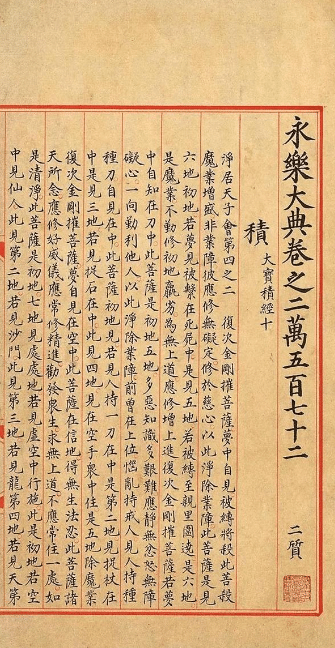 永樂大典卷之二萬五百七十二
二質
積
大寶積經十
淨居天子會第四之二 復次金剛摧菩薩夢中自見被縛將殺此菩殺
魔業增盛非業障彼應修無礙定修於慈心以此淨除業障此菩薩是見
六地初地若夢見被繫在死屍中是見五地若被縛至親里圍遶是六地
是魔業不動修初地羸劣為無上道應修增上進復次金剛摧菩薩若夢
中自知在刀中此菩薩是初地五地多惡知識多艱難應靜無忿怒無障
礙心一向勤利他人以此淨除業障前曾在上位惱亂持戒人見人持種
種刀自見在中此菩薩初地見若見人持一刀在中是第二地見捉杖在
中是見三地若見捉石在中此見四地見在空手衆中住是五地除魔業
復次金剛摧菩薩夢自見在空中此菩薩在信地得無生法忍此菩薩諸
天所念應修好威儀應常修精進勸發衆生求無上道不應常住一處如
是清淨此菩薩是初地七地見處處地若見虛空中行施此是初地若空
中見仙人此見第二地若見沙門此見第一地若見龍第四地若見天第